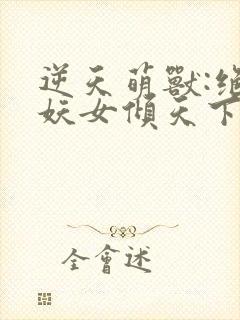 逆天萌獸:絕
妖女傾天下
全會述